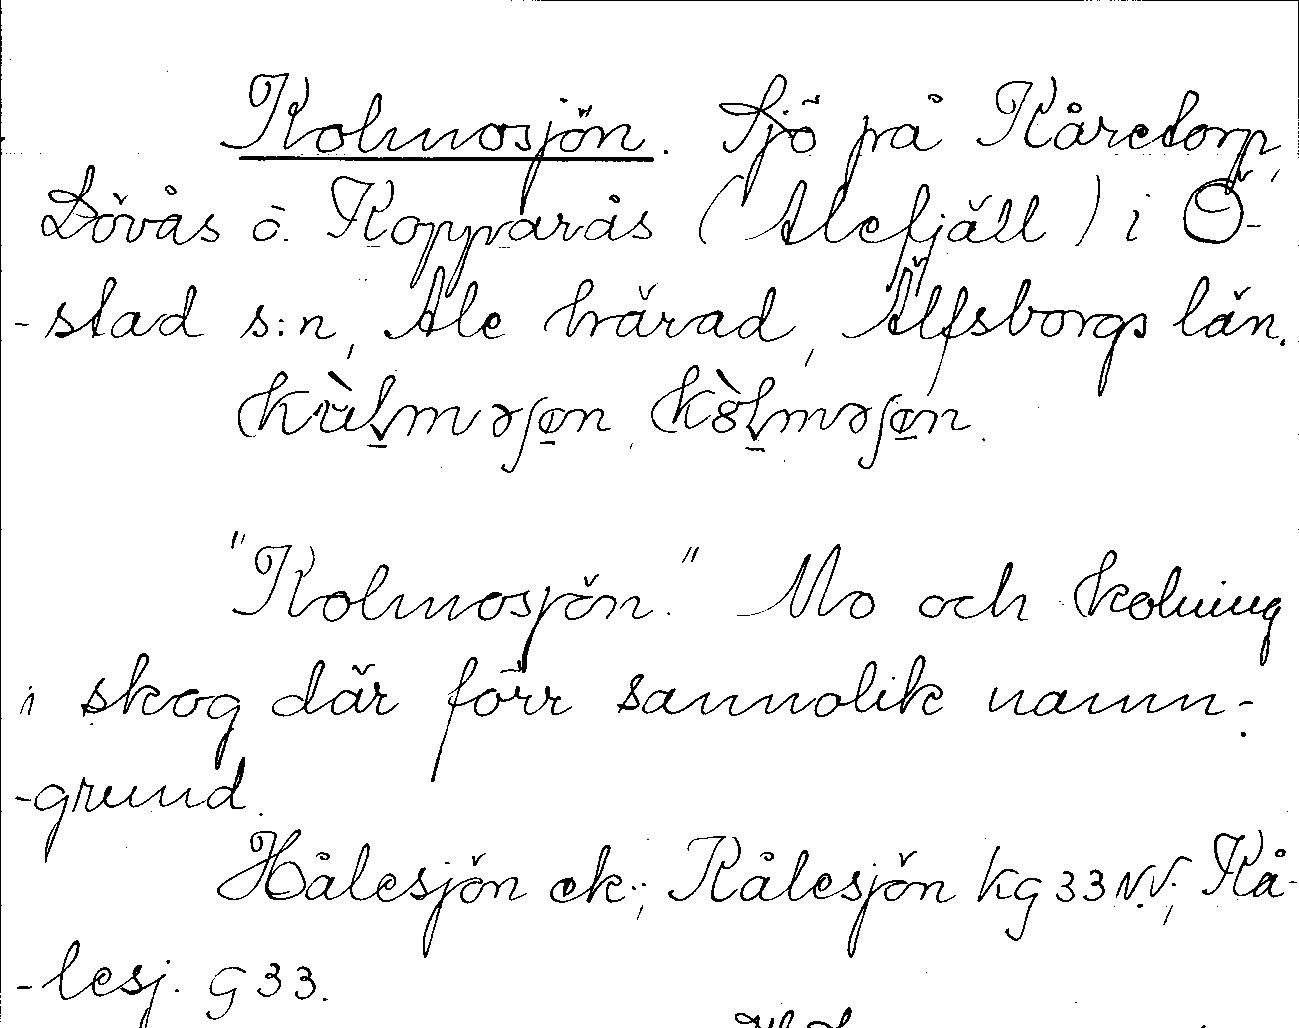 Kolmosjön. Sjö på Kåretorp,
Dövås o. Kopparås (Alefjäll) i Ö-
-stad s:n, Ale härad, Älfsborgs län.
"Kolmosjön." Mo och kolning
i skog där förr sannolik namn-
-grund.
Hålesjön ek.; Kålesjön kg 33 NV; Kå-
-lesj. G 33.